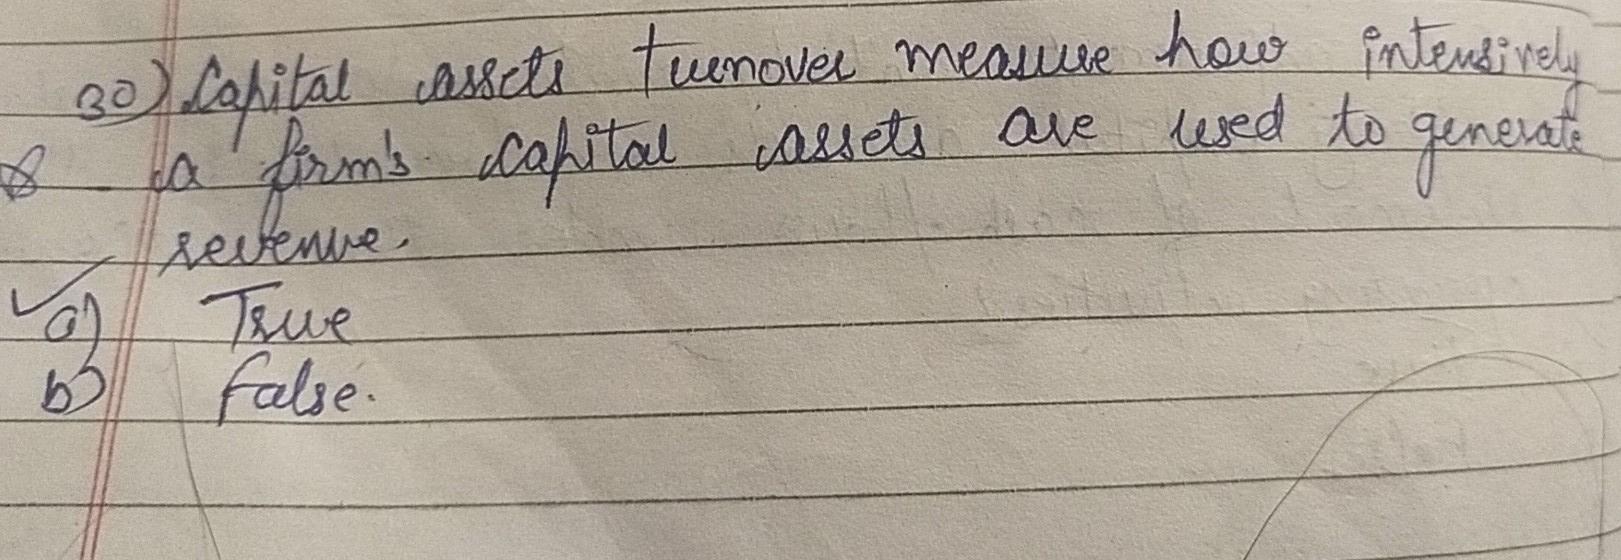 30) Capital assets turnover measure how intensively
a firm's capital assets are used to generate
revenue.
a) True
b) False.